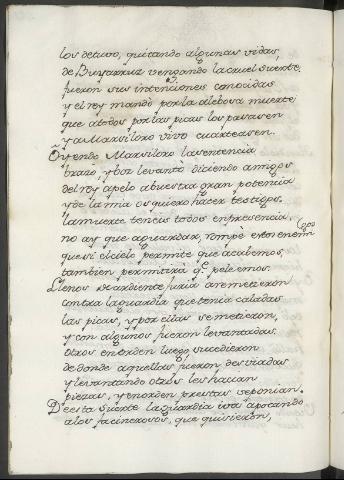 los detuvo, quitando algunas vidas,
de Bunarruz vengando la cruel suerte.
fueron sus intenciones conocidas
y el rey mandó por la alebosa muerte
que a todos por las picas los pasasen
y a Marsiloro vivo cuarteasen.
Oyendo Marsiloro la sentencia
brazo, y boz levanto diciendo amigos
del rey apelo a buestra gran potencia
y de la mia os quiero hacer testigos.
la muerte teneis todos en presencia,
no ay que aguardar, rompé estos enemigos
que si el cielo permite que acabemos,
tambien permitirá q. peleemos.
Llenos de ardiente furia aremetieron
contra la guardia que tenia caladas
las picas, y por ellas se metieron,
y con algunos fueron levantadas.
otros en orden luego sucedieron
de donde aquellas fueron desviadas
y levantando otros les hacian
piezas, y en orden prestas se ponian.
De esta suerte la guardia iva apocando
a los facinerosos, que quisieron,